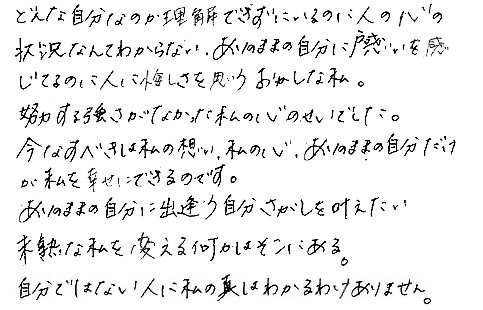 どんな自分なのか理解できずにいるのに人の心の
状況なんてわからない。ありのままの自分に戸惑いを感
じてるのに人に悔しさを思う おかしな私。
努力する強さがなかった私の心のせいでした。
今なすべきは私の想い、私の心、ありのままの自分だけ
が私を幸せにできるのです。
ありのままの自分に出逢う自分さがしを叶えたい
未熟な私を変える何かはそこにある。
自分ではない人に私の真はわかるわけありません。